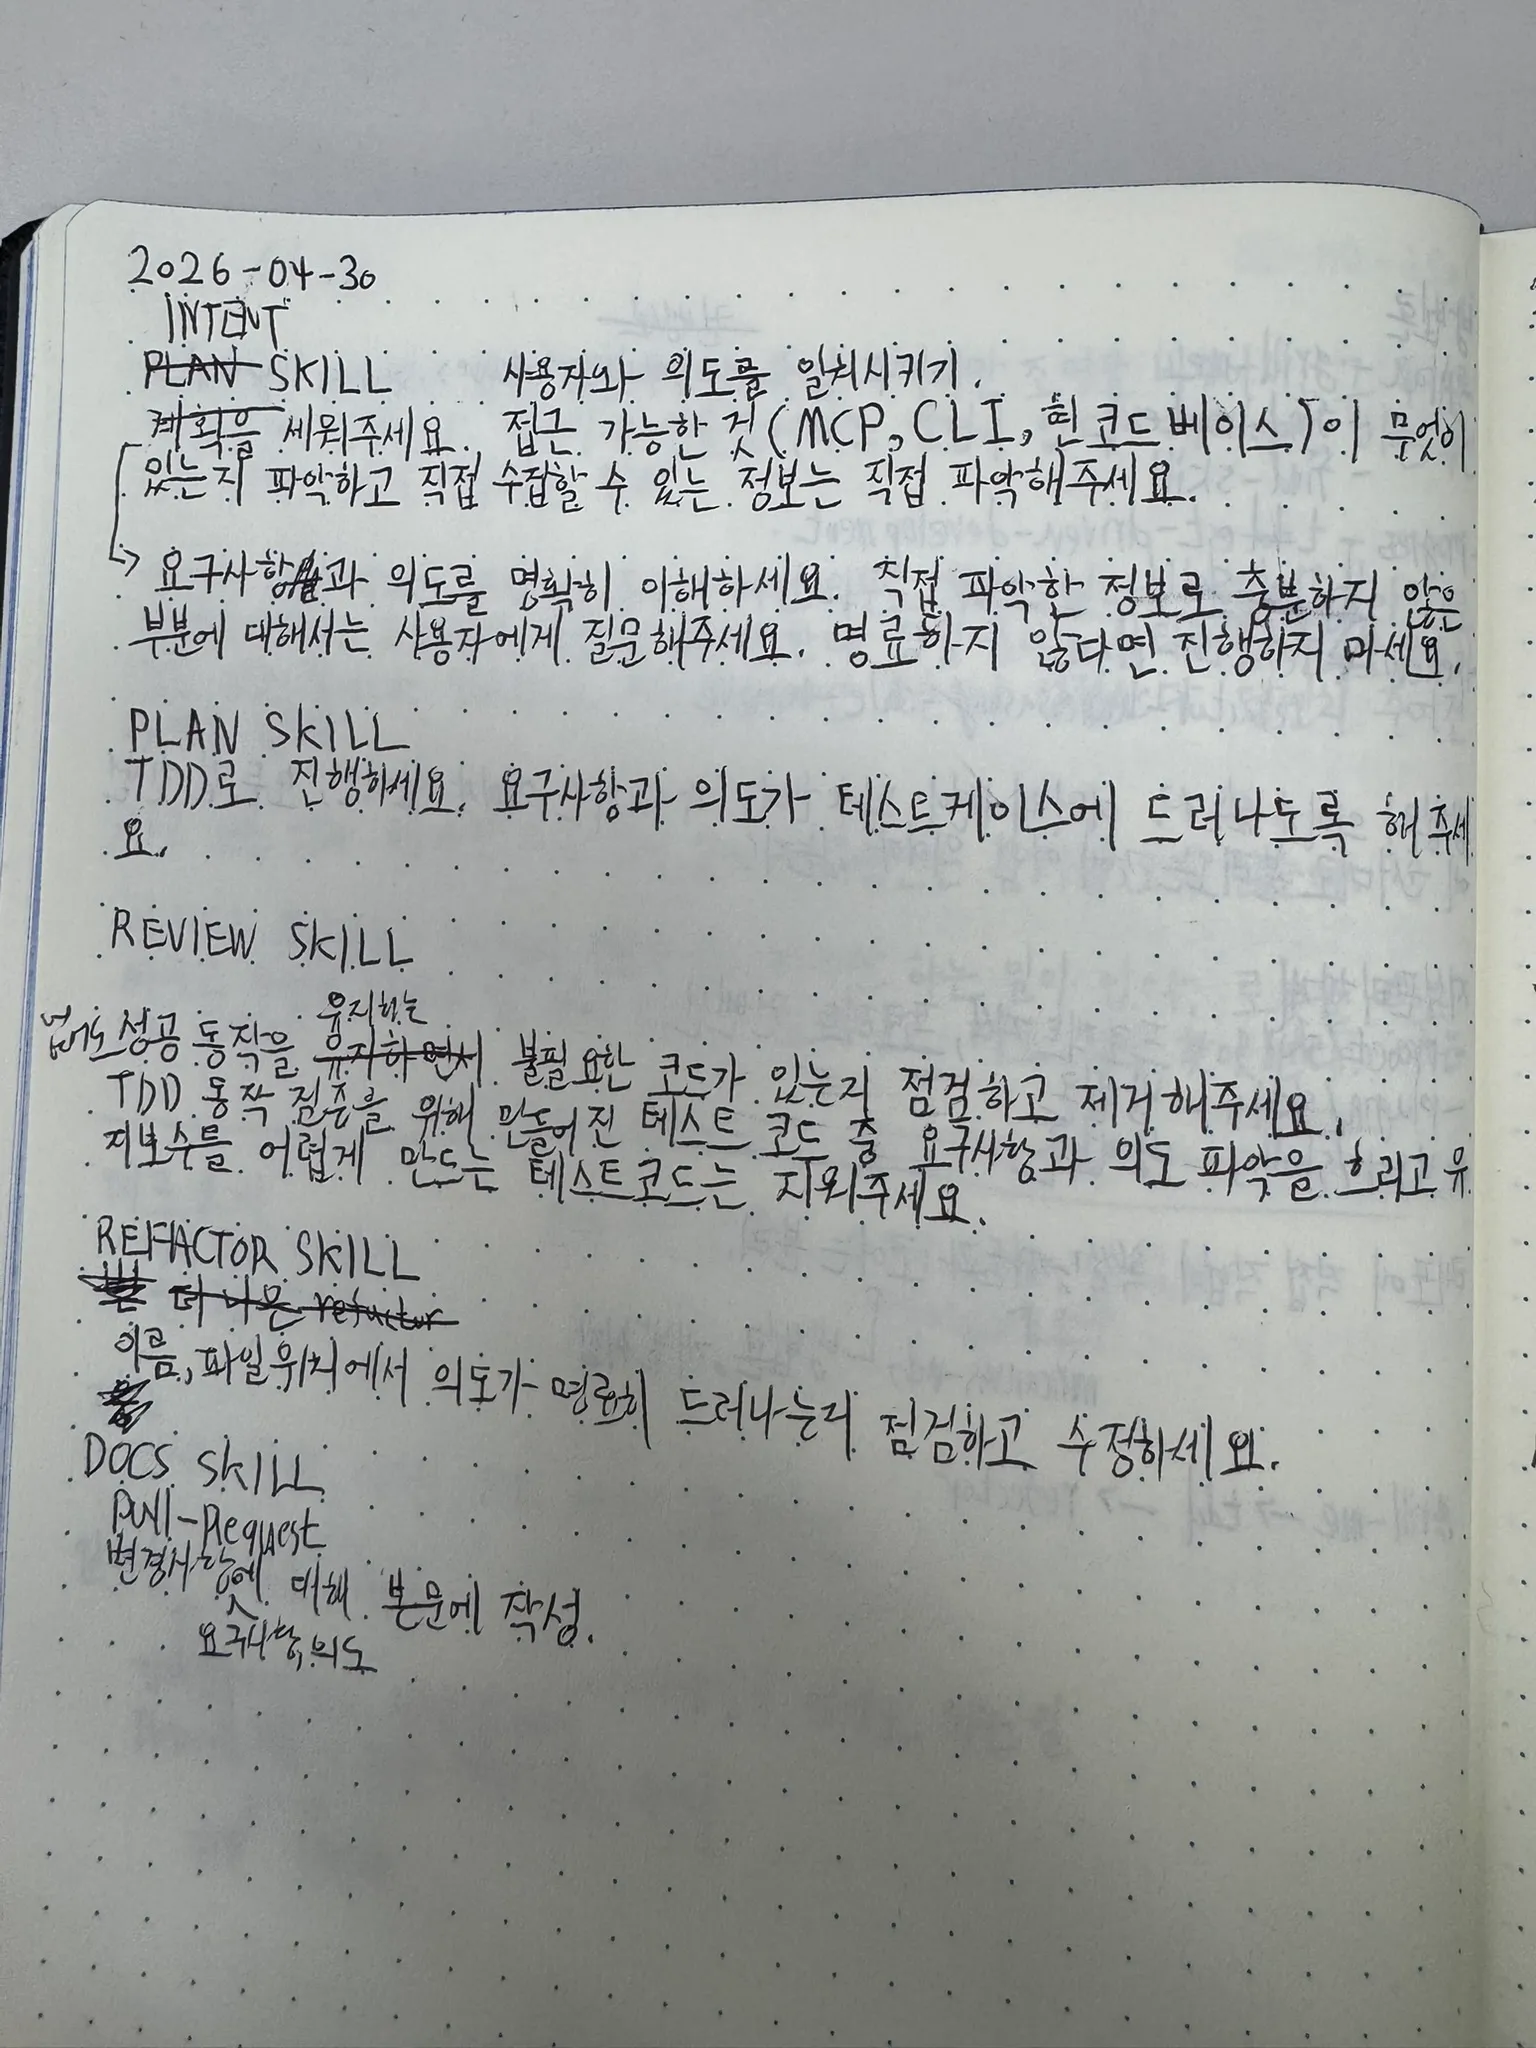 2026-04-30
INTENT
PLAN SKILL 사용자와 의도를 일치시키기.
계획을 세워주세요. 접근 가능한 것(MCP, CLI, 현 코드베이스)이 무엇이
있는지 파악하고 직접 수집할 수 있는 정보는 직접 파악해주세요.
→ 요구사항과 의도를 명확히 이해하세요. 직접 파악한 정보로 충분하지 않은
부분에 대해서는 사용자에게 질문해주세요. 명료하지 않다면 진행하지 마세요.
PLAN SKILL
TDD로 진행하세요. 요구사항과 의도가 테스트케이스에 드러나도록 해주세
요.
REVIEW SKILL
유지하는
없어도 성공 동작을 유지하면서 불필요한 코드가 있는지 점검하고 제거해주세요.
TDD 동작 검증을 위해 만들어진 테스트 코드 중 요구사항과 의도 파악을 흐리고 유
지보수를 어렵게 만드는 테스트코드는 지워주세요.
REFACTOR SKILL
더 나은 refactor
이름, 파일위치에서 의도가 명료히 드러나는지 점검하고 수정하세요.
DOCS SKILL
Pull-Request
변경사항에 대해 본문에 작성.
요구사항, 의도